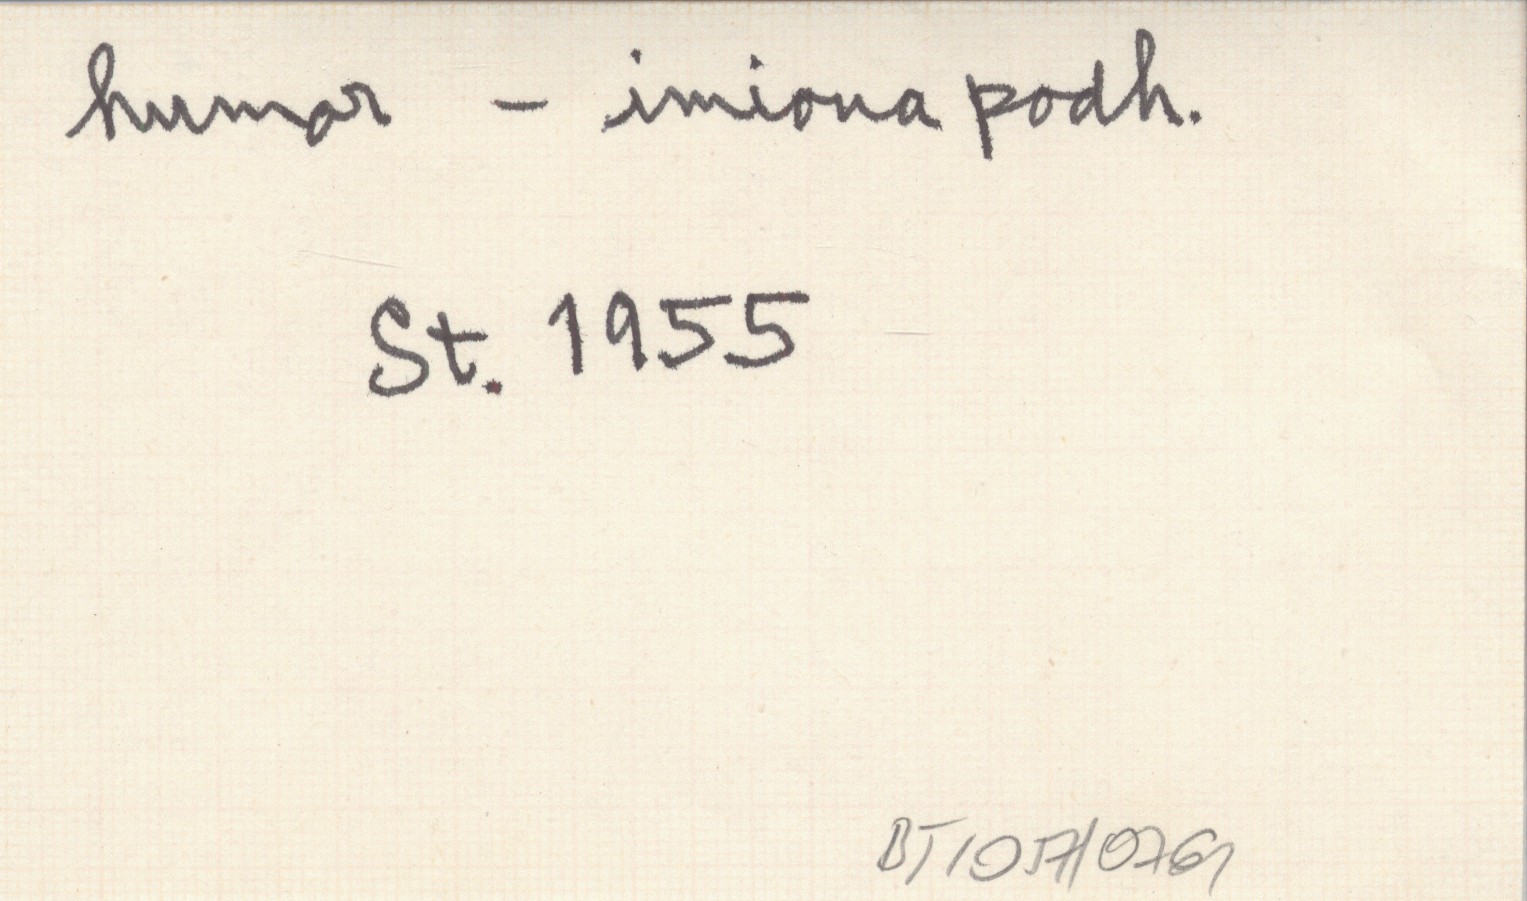 humor – imiona podh.
St. 1955
BT/057/0761